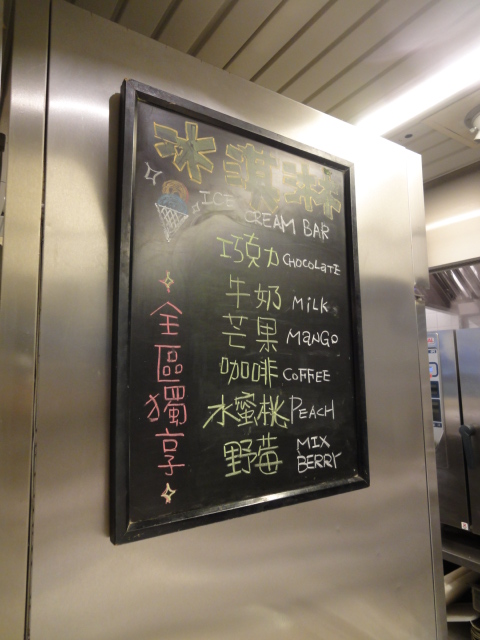 冰淇淋
ICE CREAM BAR
巧克力 CHOCOLATE
牛奶 MILK
芒果 MANGO
咖啡 COFFEE
水蜜桃 PEACH
野莓 MIX BERRY
全區獨享